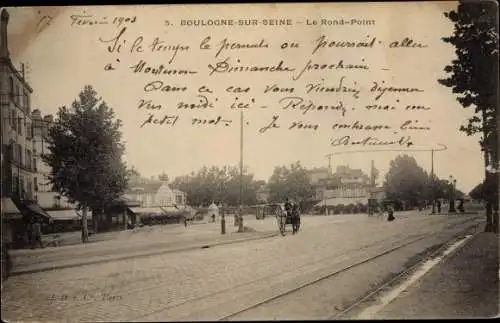 5. BOULOGNE-SUR-SEINE - Le Rond-Point
17 Février 1903
Si le temps le permets on pourrait aller
à Montesson Dimanche prochain -
Dans ce cas vous viendriez déjeuner
vers midi ici - Répondez moi un
petit mot. Je vous embrasse bien
J. D. & C., PARIS